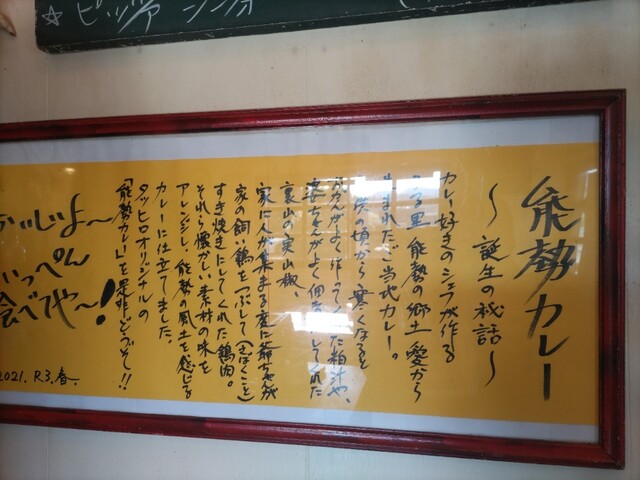 ☆ピッツァ
能勢カレー
〜誕生の秘話〜
カレー好きのシェフが作る
ふる里 能勢の郷土愛から
生まれたご当地カレー。
子供の頃から寒くなると
よく作ってくれた粕汁や、
婆ちゃんがよく佃煮にしてくれた
裏山の実山椒、
家に人が集まる度に爺ちゃんが
家の飼い鶏をつぶして(さばくこと)
すき焼きにしてくれた鶏肉。
それら懐かしい素材の味を
アレンジし、能勢の風土を感じる
カレーに仕立てました。
タッヒロオリジナルの
「能勢カレー」を是非どうぞ!!
いっぺん
食べてや〜!
2021. R3.春.